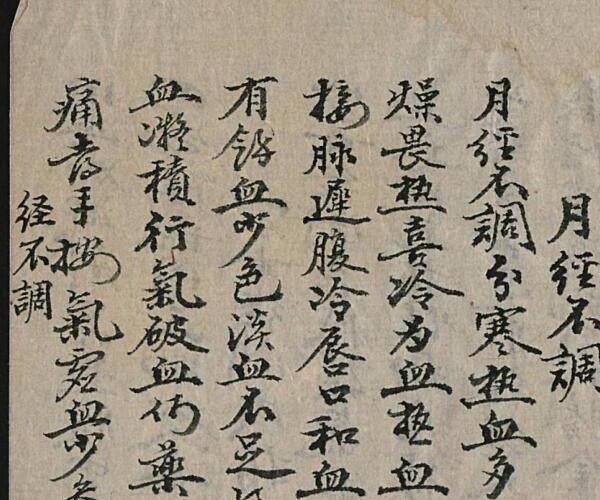 月經不調
月經不調分寒熱血多
燥畏热喜冷为血热血
按脉遲腹冷唇口和血
有餘血少色淡血不足
血凝積行氣破血例藥
痛喜手按氣虛血少
経不調